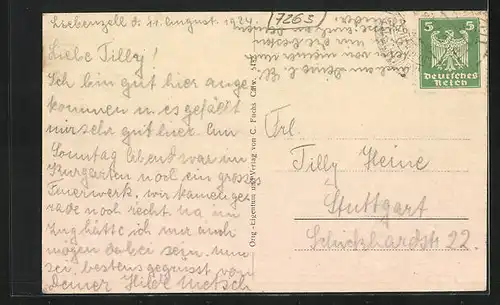 Liebenzell d. 11. August. 1924.
(7263)
Liebe Tilly!
Ich bin gut hier ange
kommen u. es gefällt
mir sehr gut hier. Am
Sonntag Abend war im
Kurgarten noch ein grosses
Feuerwerk. wir kamen ge-
rade noch recht. na, im
Zug hätte ich mir auch
mögen dabei sein. nun
sei bestens gegrüsst von
Deiner Hilde
Orig.-Eigentum und Verlag von C. Fuchs
5
5
Deutsches
Reich
Frl.
Tilly Heine
Stuttgart
Schickhardtstr 22.